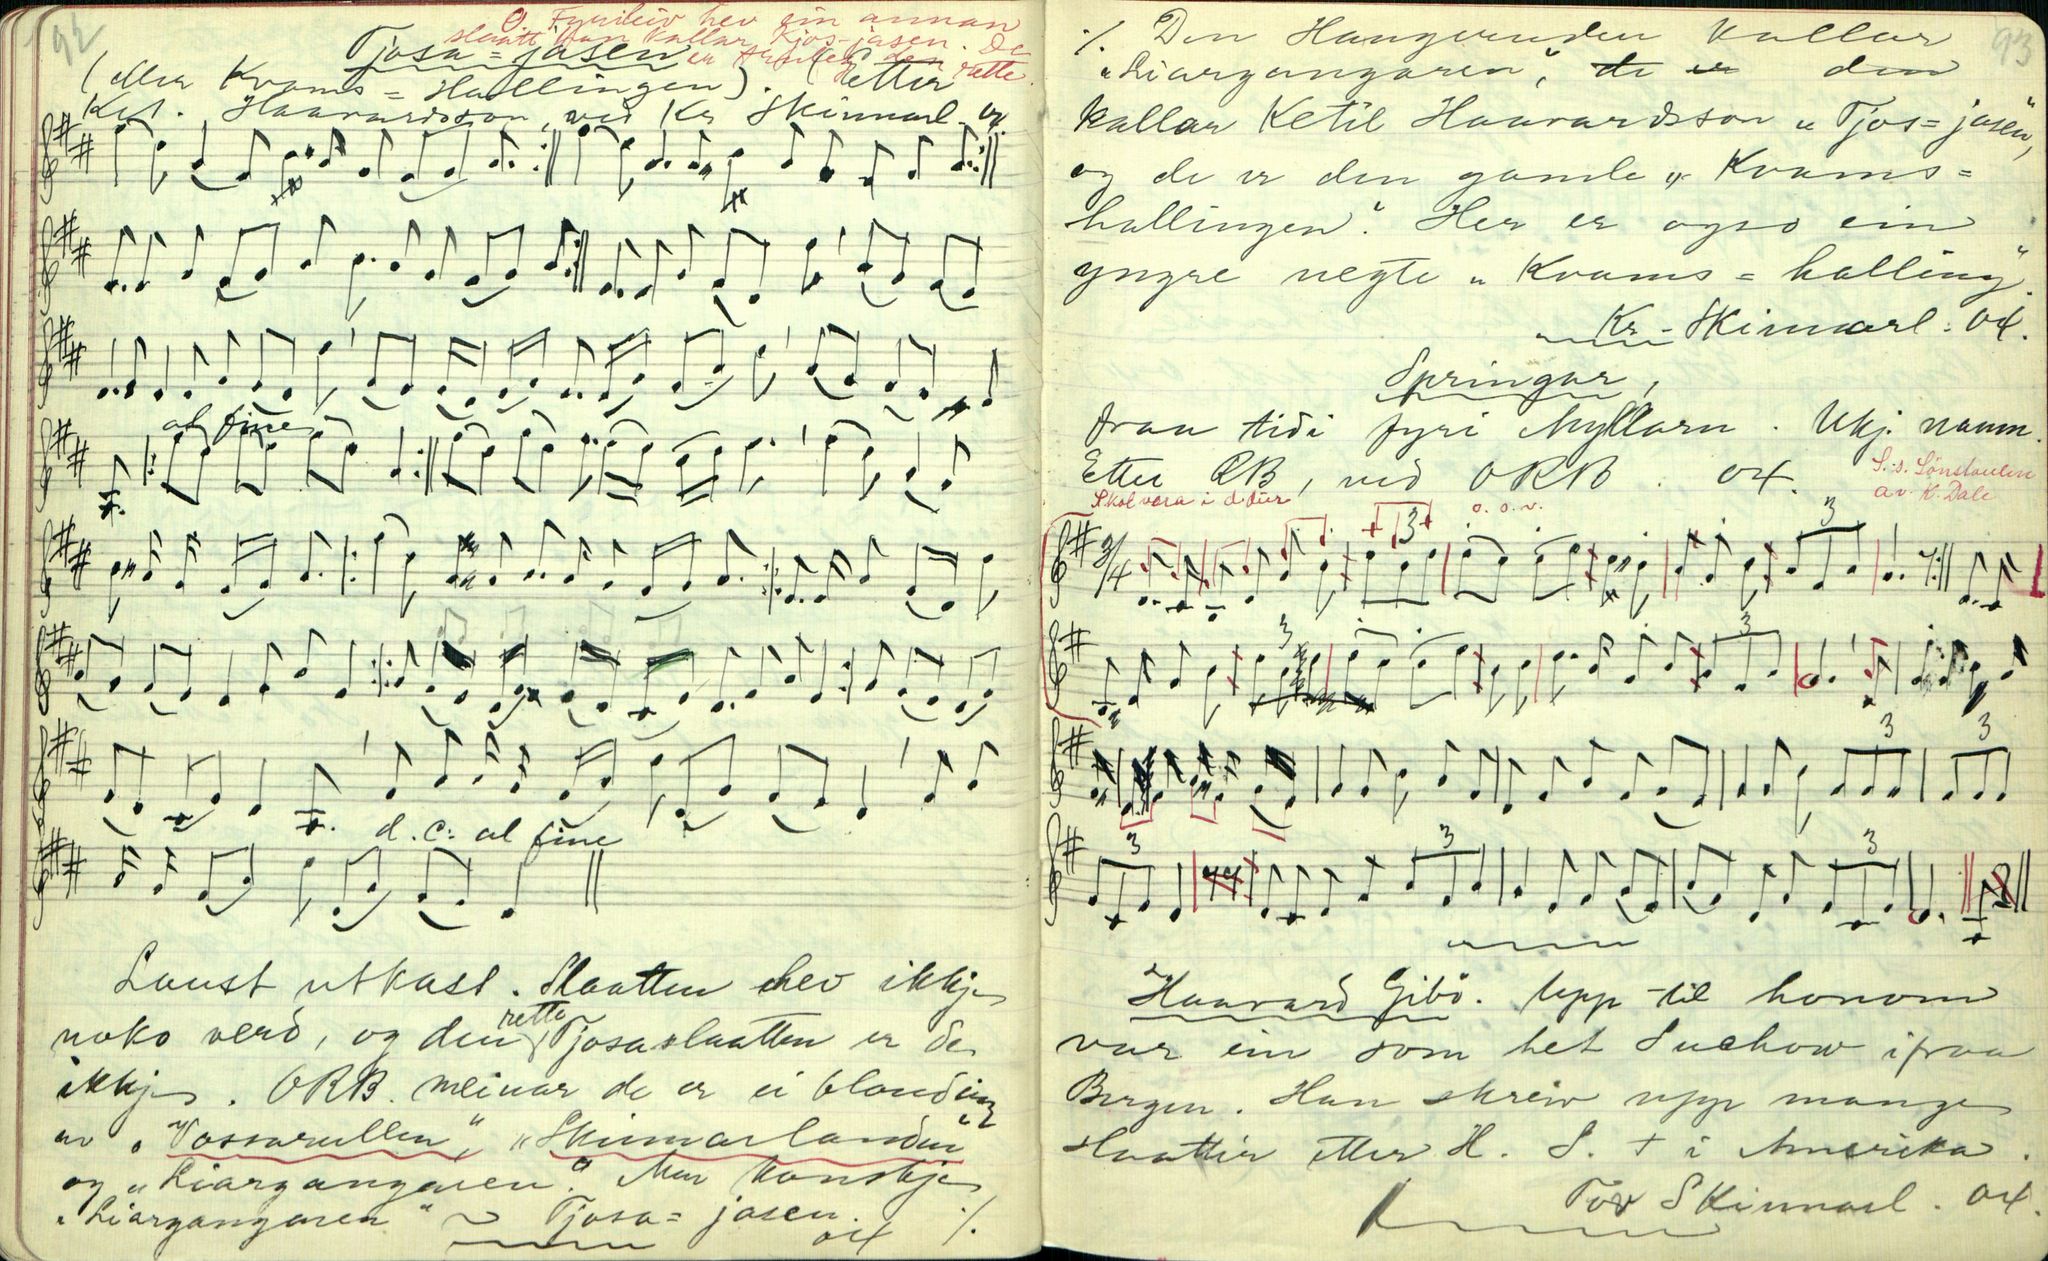 92
O. Fyrileiv hev ein annan
slaatt han kallar Kjos-jasen. De
er truleg den rette.
Tjosa=jasen
(eller Kvams=Hallingen). (etter
Ket. Haavardsson, ved Kr Skinnarl. 04
al fine
d. c. al fine
Laust utkast. Slaatten hev ikkje
noko verd, og den rette Tjosaslaatten er de
ikkje. ORB. meinar de er ei blanding
av „Vossarullen", „Skinnarlanden"
og „Liargangaren". Men kanskje
„Liargangaren" ~ Tjosa=jasen.
04 ·/.
93
·/. Den Haugerunden kallar
„Liargangaren", de er den
kallar Ketil Haavardsson „Tjos=jasen",
og de er den gamle „Kvams=
hallingen". Her er ogso ein
yngre negte „Kvams=halling".
Kr. Skinnarl. 04.
Springar,
fraa tidi fyri Myllarn. Ukj. namn.
Etter RB, ved ORB. 04.
S. s. Lønstaulen
av K. Dale
Skol vera i d dur
o. s. v.
3/4
3
3
3
3
3
3
3
3
3
Haavard Gibö. Upp-til honom
var ein som het Suchow ifraa
Bergen. Han skreiv upp mange
slaattir etter H. S. + i Amerika.
Tov Skinnarl. 04.